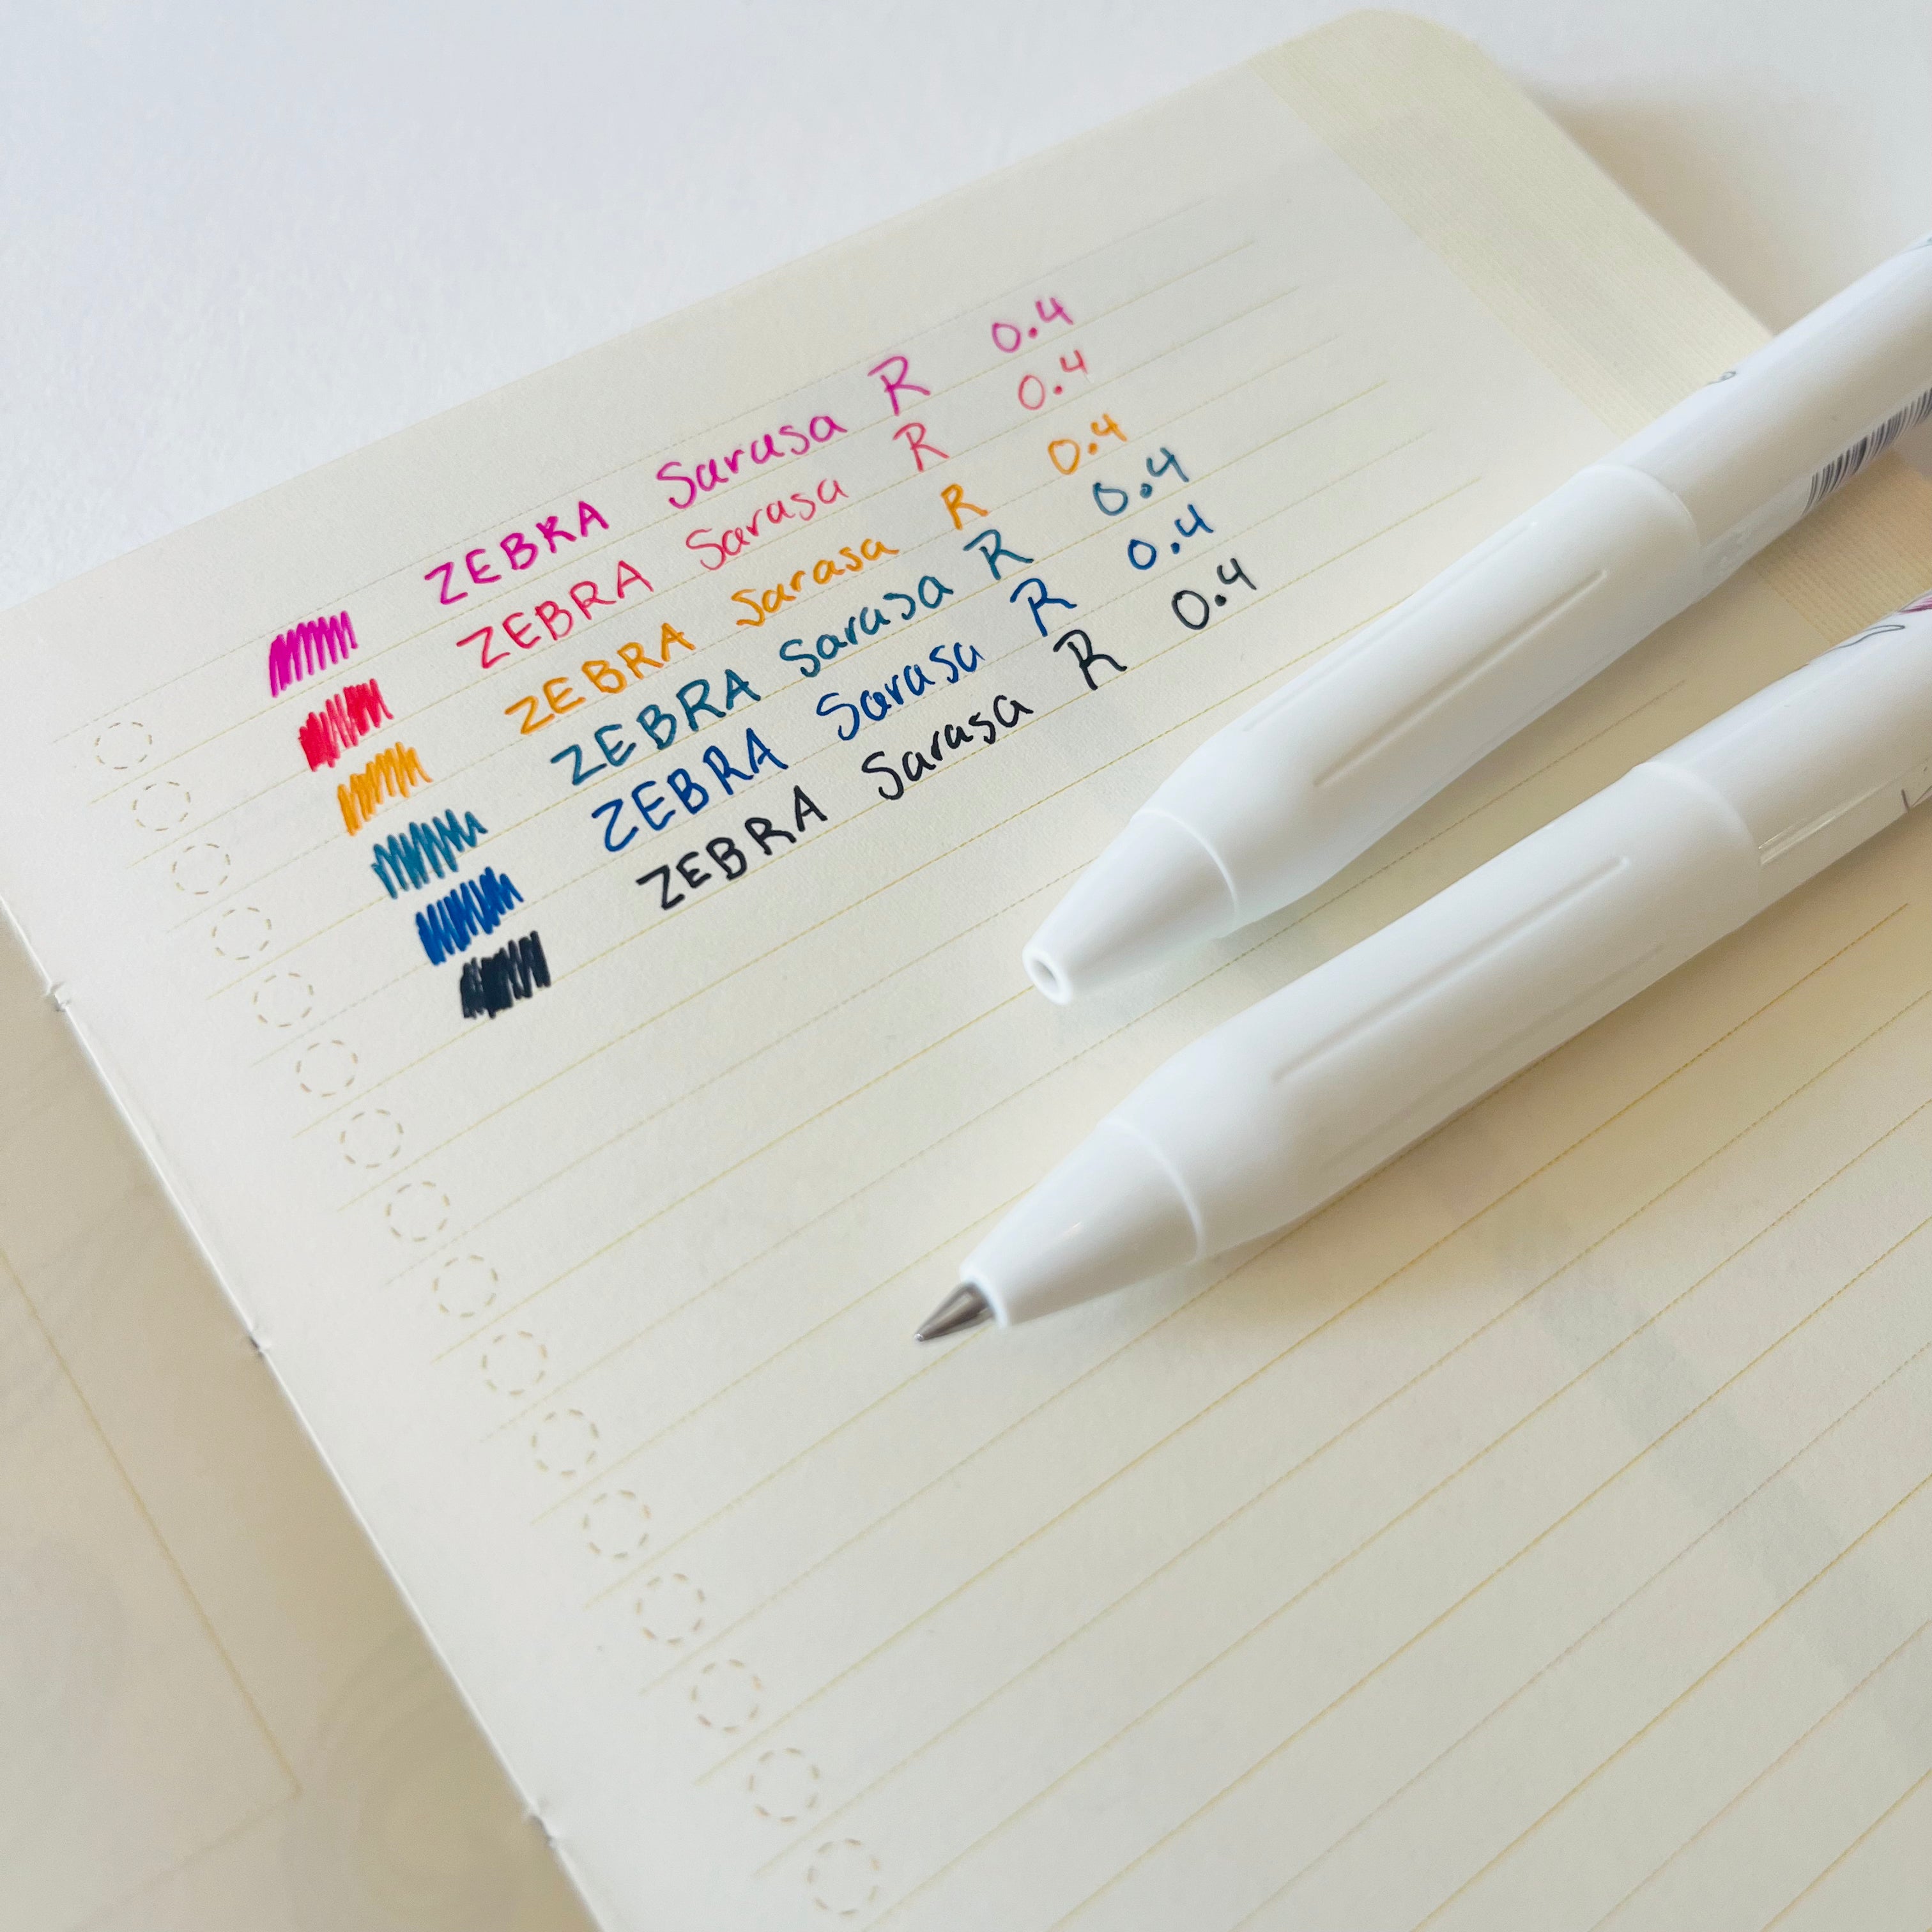 ZEBRA Sarasa R 0.4
ZEBRA Sarasa R 0.4
ZEBRA Sarasa R 0.4
ZEBRA Sarasa R 0.4
ZEBRA Sarasa R 0.4
ZEBRA Sarasa R 0.4